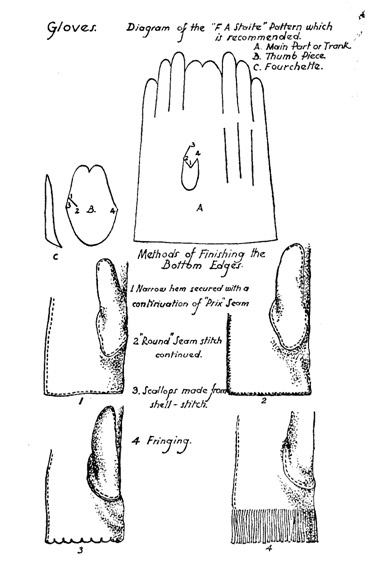 Gloves.
Diagram of the "F A Staite" Pattern which
of the is recommended.
A. Main Part or Trank.
B. Thumb Piece.
C. Fourchette.
3
2 1 4
A
1
3 2 B. 4
C
Methods of Finishing the
Bottom Edges.
1 Narrow hem secured with a
continuation of "Prix" Seam
2 "Round" Seam stitch
continued.
3. Scallops made from
shell-stitch.
4 Fringing.
1
2
3
4